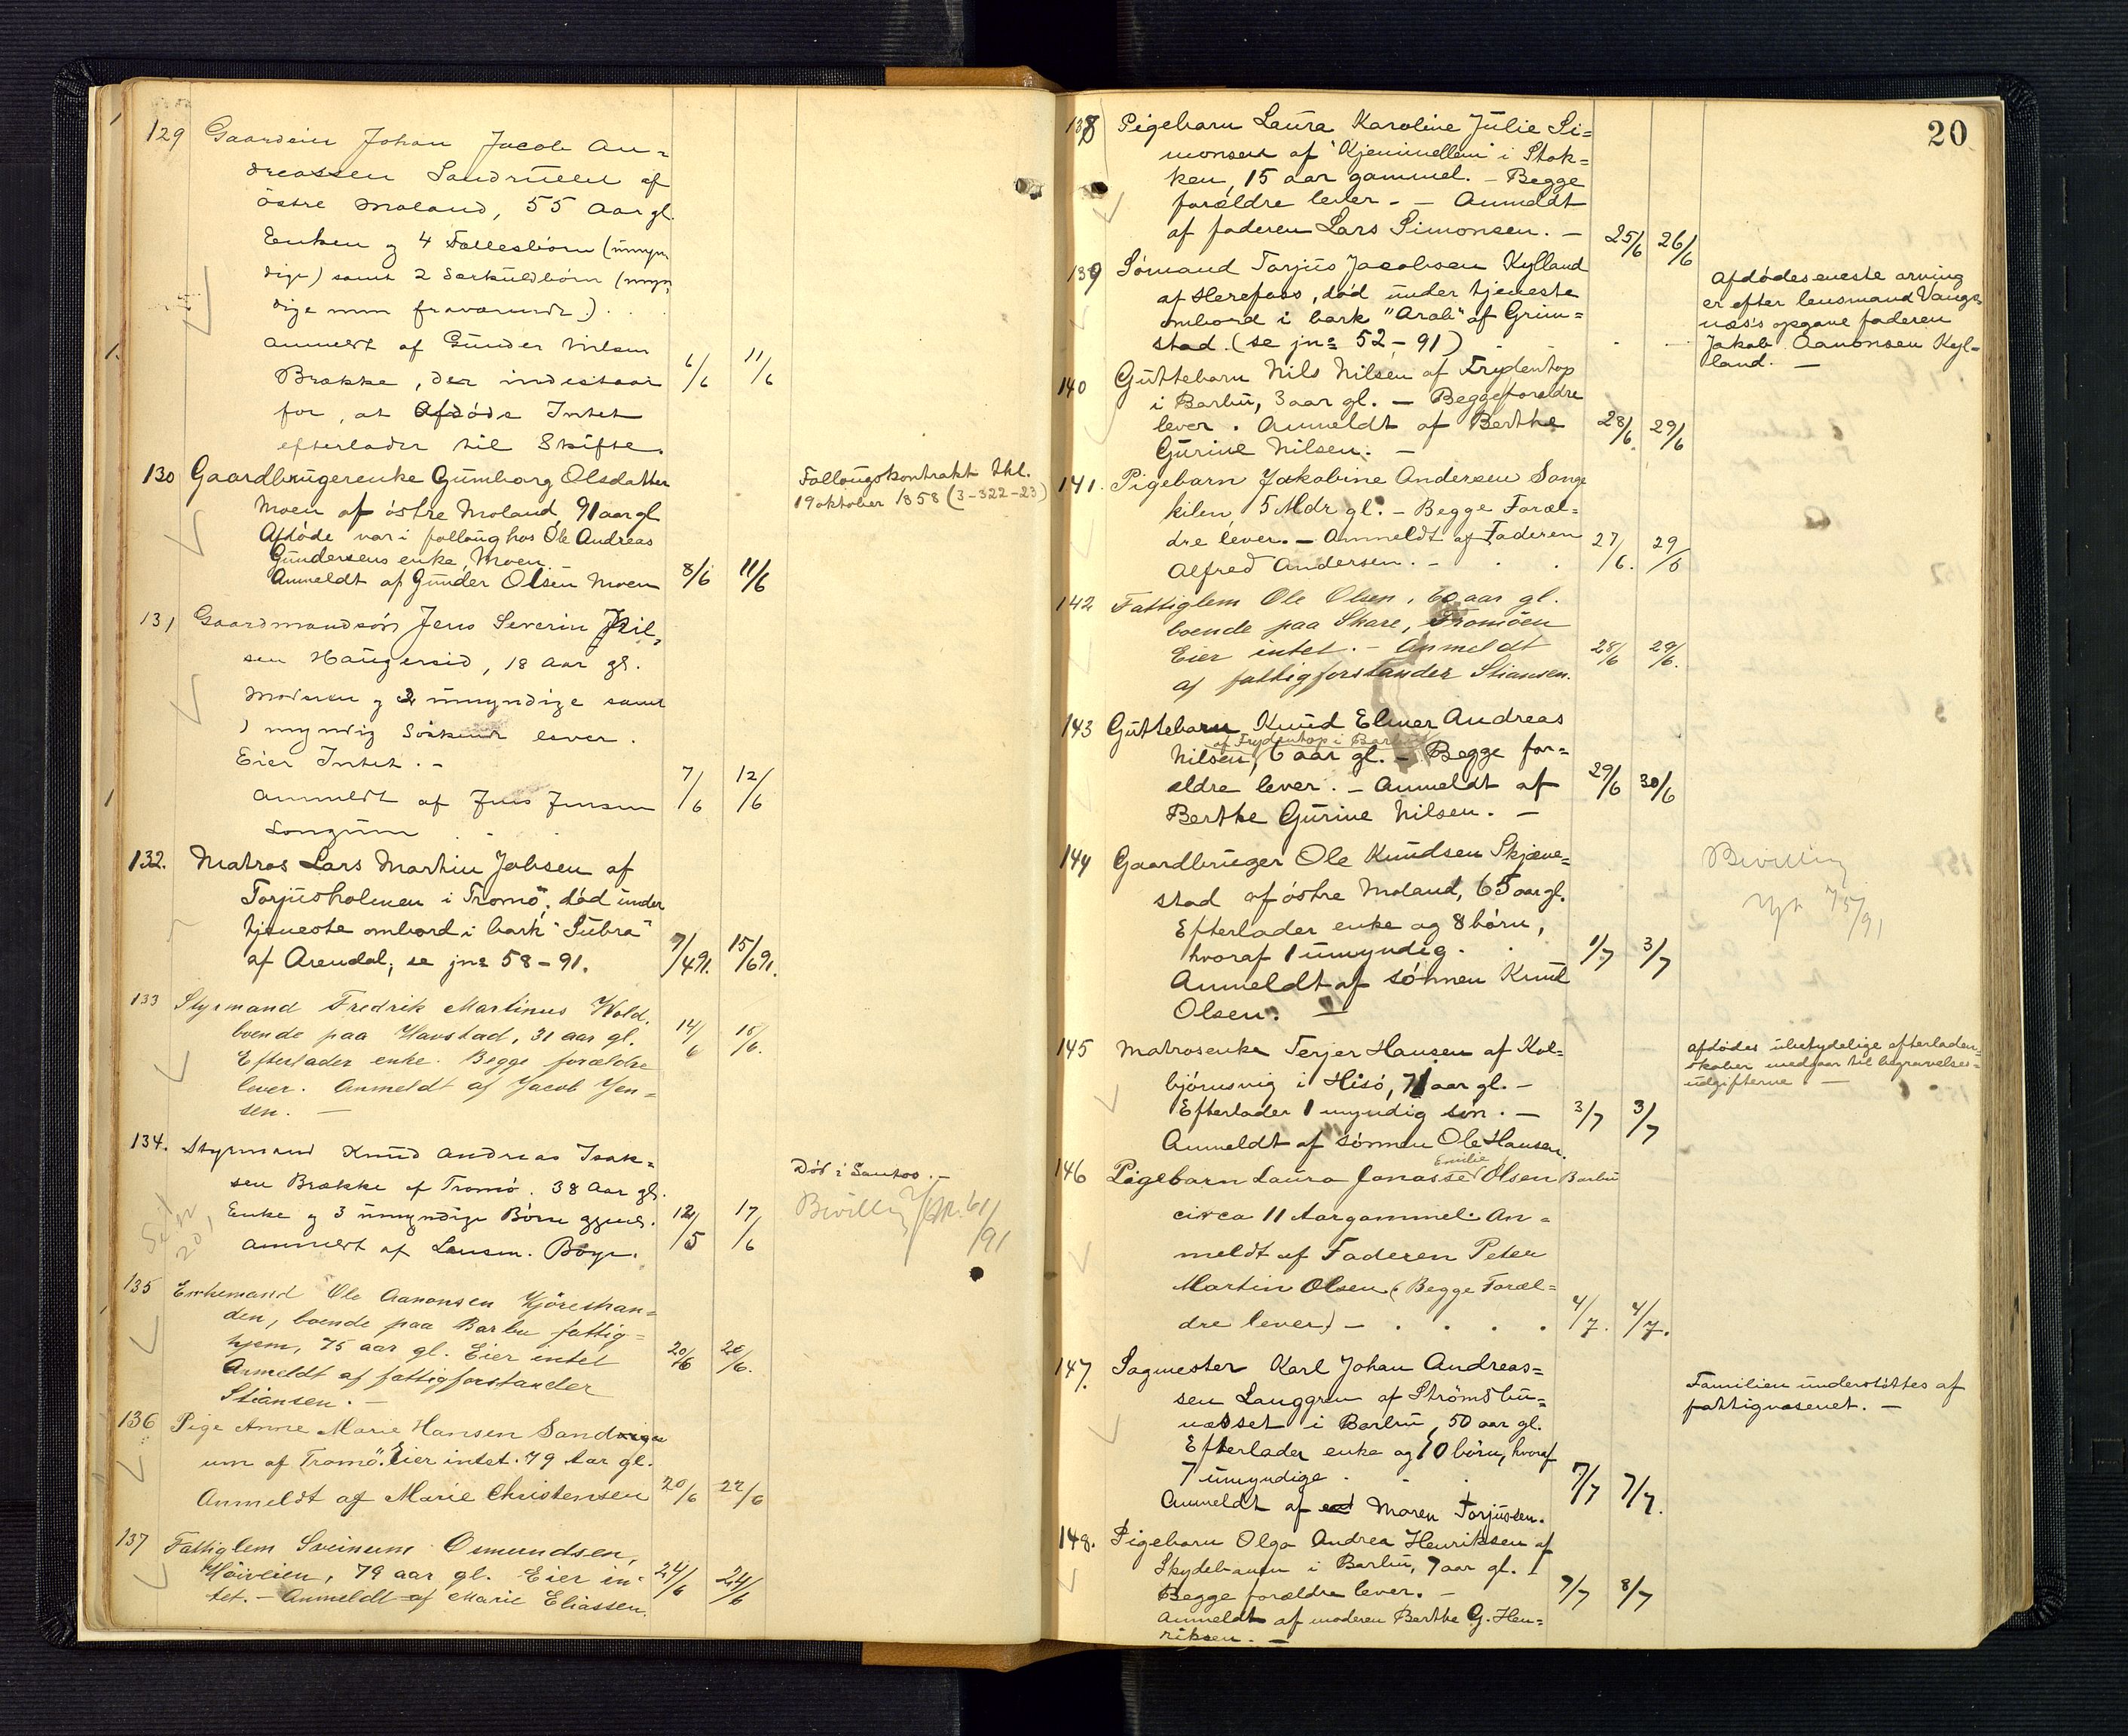 129 Gaardeier Johan Jacob An-
dreassen Sandruen af
östre Moland, 55 Aar gl.
Enken og 4 Fællesbörn (umyn
dige) samt 2 Særkuldbörn (myn
dige men fraværende).
Anmeldt af Gunder Nilsen
Brække, der indestaar 6/6 11/6
for, at Afdöde Intet
efterlader til Skifte.
130 Gaardbrugerenke Gumborg Olsdatter
Moen af östre Moland, 91 aar gl
Afdöde var i follaug hos Ole Andreas
Gundersens enke, Moen.
Anmeldt af Gunder Olsen Moen 8/6 11/6
Follaugskontrakt thl.
19 oktober 1858 (3-322-23)
131 Gaardmandsön Jens Severin Nil,
sen Haugersid, 18 Aar gl.
Moderen og 2 umyndige samt
1 myndig Söskende lever.
Eier Intet. -
Anmeldt af Jens Jensen 7/6 12/6
Longum
132. Matros Lars Martin Jobsen af
Torjusholmen i Tromö, död under
tjeneste ombord i bark "Subra"
af Arendal, se jno 58-91. 9/4 91. 15/6 91.
133 Styrmand Fredrik Martinus Wold,
boende paa Havstad, 31 aar gl. 14/6 15/6.
Efterlader enke. Begge forældre
lever. Anmeldt af Jacob Jen=
sen. -
134. Styrmand Knud Andreas Isak=
sen Brække af Tromö. 38 Aar gl.
Enke og 3 umyndige Börn 12/5 17/6
Anmeldt af Lensm. Boye.
Död i Santos. -
Bevilling 61/91
135 Enkemand Ole Aanonsen Kjöreshan=
den, boende paa Barbu fattig=
hjem, 75 aar gl. Eier intet 20/6 20/6.
Anmeldt af fattigforstander
Stiansen. -
136 Pige Anne Marie Hansen Sandvigen
um af Tromö. Eier intet. 79 Aar gl.
Anmeldt af Marie Christensen 20/6 22/6
137 Fattiglem Sveinum Osmundsen,
Höiveien, 79 aar gl. Eier in- 24/6 24/6
tet. - Anmeldt af Marie Eliassen.
20
138 Pigebarn Laura Karoline Julie Si=
monsen af "Kjenmellem" i Stok=
ken, 15 aar gammel. - Begge
forældre lever. - - Anmeldt
af faderen Lars Simonsen. - 25/6 26/6
139 Sömand Torjus Jacobsen Kylland
af Herefoss, död under tjeneste
ombord i bark "Arab" af Grim=
stad. (se jno 52-91)
Afdödes eneste arving
er efter lensmand Vangs
næs's opgave faderen
Jakob Aanonsen Kyl-
land. -
140 Guttebarn Nils Nilsen af Frydentop
i Barbu, 3 aar gl. - Begge forældre
lever. Anmeldt af Berthe 28/6. 29/6
Gurine Nilsen. -
141. Pigebarn Jakobine Andersen Songe
kilen 5 Mdr gl. - Begge Foræl=
dre lever. - Anmeldt af Faderen 27/6. 29/6
Alfred Andersen. -
142 Fattiglem Ole Olsen, 60 aar gl.
boende paa Skare, Tromöen
Eier intet. - Anmeldt 28/6 29/6.
af fattigforstander Stiansen.
143 Guttebarn Knud Elmer Andreas
af Frydentop i Barbu
Nilsen, 6 aar gl. - Begge for=
ældre lever. - Anmeldt af 29/6 30/6
Berthe Gurine Nilsen. -
144 Gaardbruger Ole Knudsen Skjæve=
stad af östre Moland, 65 aar gl.
Efterlader enke og 8 börn,
hvoraf 1 umyndig. 1/7 3/7
Anmeldt af sönnen Knud
Olsen. -
Bevilling
75/91
145 Matrosenke Terjer Hansen af Kol=
björnsvig i Hisö, 71 aar gl. -
Efterlader 1 myndig sön. - 3/7 3/7
Anmeldt af sönnen Ole Hansen.
afdödes ubetydelige efterladen=
skaber medgaar til begravelses=
udgifterne -
Emilie
146 Pigebarn Laura Jonasse Olsen Barbu
circa 11 Aar gammel. An=
meldt af Faderen Peter
Martin Olsen (Begge Foræl=
dre lever) - 4/7. 4/7.
147. Sagmester Karl Johan Andreas=
sen Langgren af Strömsbu=
næsset i Barbu, 50 aar gl.
Efterlader enke og 10 börn, hvoraf
7 umyndige. 7/7 7/7.
Anmeldt af Maren Torjussen.
Familien understöttes af
fattigvæsenet. -
148. Pigebarn Olga Andrea Henriksen af
Skydebanen i Barbu, 7 aar gl.
Begge forældre lever. - 7/7 8/7
Anmeldt af moderen Berthe G. Hen=
riksen. -